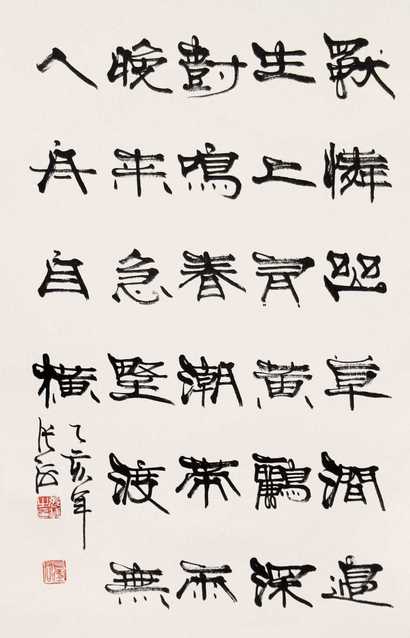 獨憐幽草澗邊
生上有黃鸝深
尌鳴春潮帶雨
晚來急野渡無
人舟自橫
乙亥年